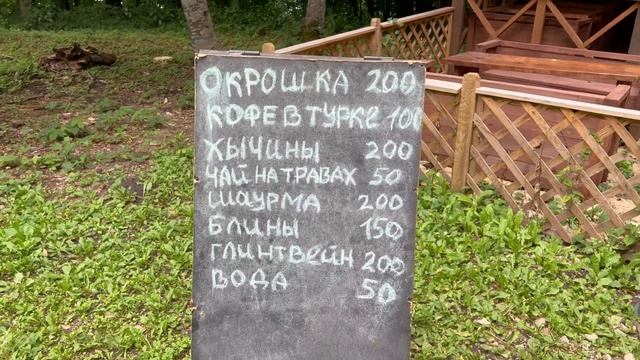 ОКРОШКА 200
КОФЕ В ТУРКЕ 100
ХЫЧИНЫ 200
ЧАЙ НА ТРАВАХ 50
ШАУРМА 200
БЛИНЫ 150
ГЛИНТВЕЙН 200
ВОДА 50